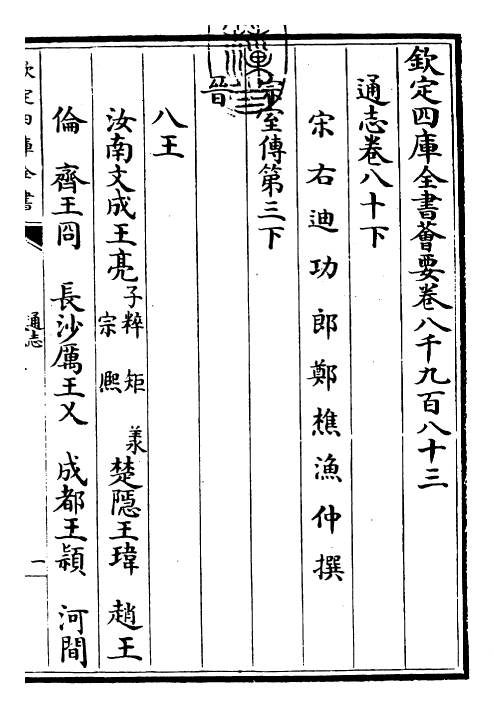 欽定四庫全書薈要卷八千九百八十三
通志卷八十下
宋右迪功郎鄭樵漁仲撰
宗室傳第三下
晉
八王
汝南文成王亮 子粹 矩 羕 宗 熙 楚隱王瑋 趙王
倫 齊王冏 長沙厲王乂 成都王穎 河間
欽定四庫全書
通志
一